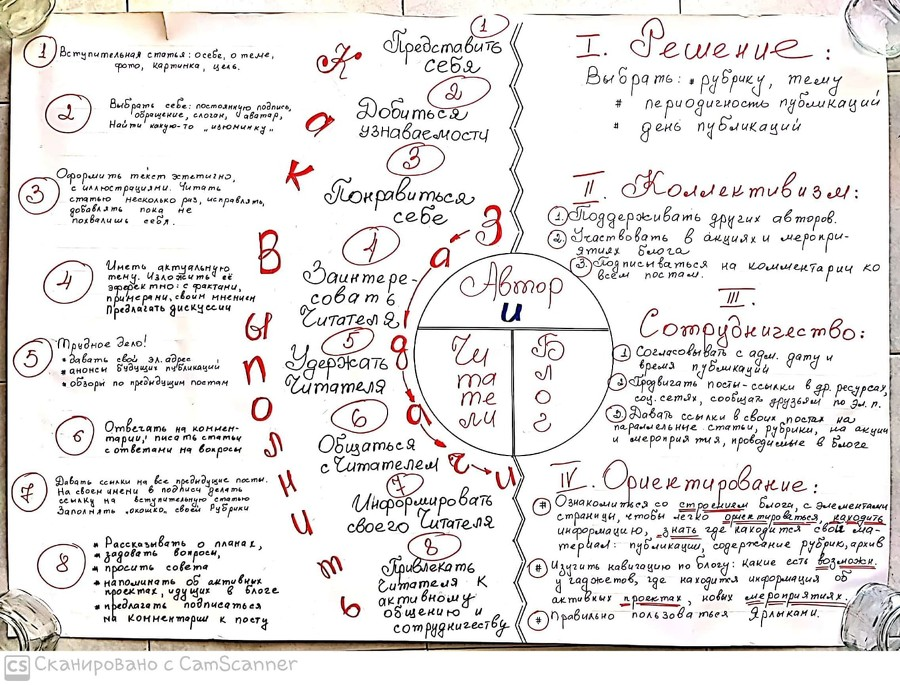 1 Вступительная статья: о себе, о теме,
фото, картинка, цель.
2 Выбрать себе: постоянную подпись,
обращение, слоган, аватар,
Найти какую-то „изюминку"
3 Оформить текст эстетично,
с иллюстрациями. Читать
статью несколько раз, исправлять,
добавлять пока не
похвалишь себя.
4 Иметь актуальную
тему. Изложить её
эффектно: с фактами,
примерами, своим мнением
Предлагать дискуссии
5 Трудное дело!
• давать свой эл. адрес
• анонсы будущих публикаций
• обзоры по предыдущим постам
6 Отвечать на коммен-
тарии, писать статьи
с ответами на вопросы
7 Давать ссылки на все предыдущие посты.
На своем имени в подписи делать
ссылку на вступительную статью
Заполнять „окошко" своей Рубрики
8 • Рассказывать о планах,
• задавать вопросы,
• просить совета
• напоминать об активных
проектах, идущих в блоге
• предлагать подписаться
на комментарии к посту
Как
Выполнить
Задачи
1 Представить
себя
2 Добиться
узнаваемости
3 Понравиться
себе
4 Заинтере-
совать
Читателя
5 Удержать
Читателя
6 Общаться
с Читателем
7 Информировать
своего Читателя
8 Привлекать
Читателя к
активному
общению и
сотрудничеству
Автор
и
Чи
та
те
ли
Блог
I. Решение:
Выбрать: * рубрику, тему
* периодичность публикаций
* день публикаций
II. Коллективизм:
1. Поддерживать других авторов.
2. Участвовать в акциях и меропри-
ятиях блога
3. Подписываться на комментарии ко
всем постам.
III.
Сотрудничество:
1 Согласовывать с адм. дату и
время публикаций
2 Продвигать посты-ссылки в др. ресурсах,
соц. сетях, сообщать друзьям по эл. п.
3. Давать ссылки в своих постах на
параллельные статьи, рубрики, на акции
и мероприятия, проводимые в блоге
IV. Ориентирование:
# Ознакомиться со строением блога, с элементами
страницы, чтобы легко ориентироваться, находить
информацию, знать где находится свой ма-
териал: публикации, содержание рубрик, архив
# Изучить навигацию по блогу: какие есть возможн.
у гаджетов, где находится информация об
активных проектах, новых мероприятиях.
# Правильно пользоваться Ярлыками.
CS Сканировано с CamScanner